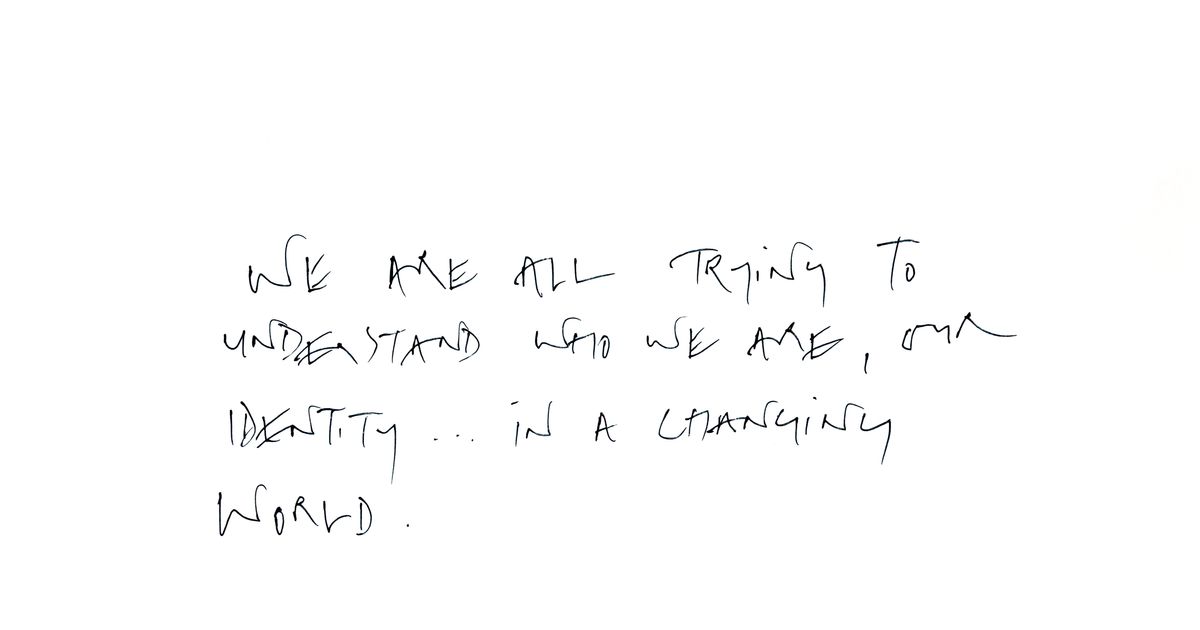 WE ARE ALL TRYiNG TO
UNDERSTAND WHO WE ARE, OUR
IDENTiTY ... iN A CHANGiNG
WORLD.